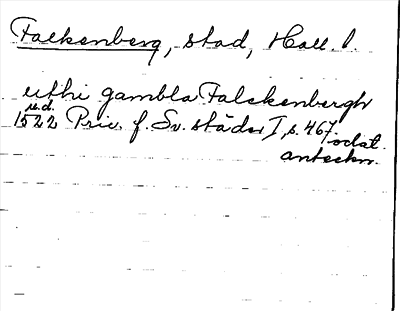 Falkenberg, stad, Hall. l.
uthi gambla Falckenbergh
u.d.
1522 Priv. f. Sv. städer I, s. 467.
odat.
anteckn.